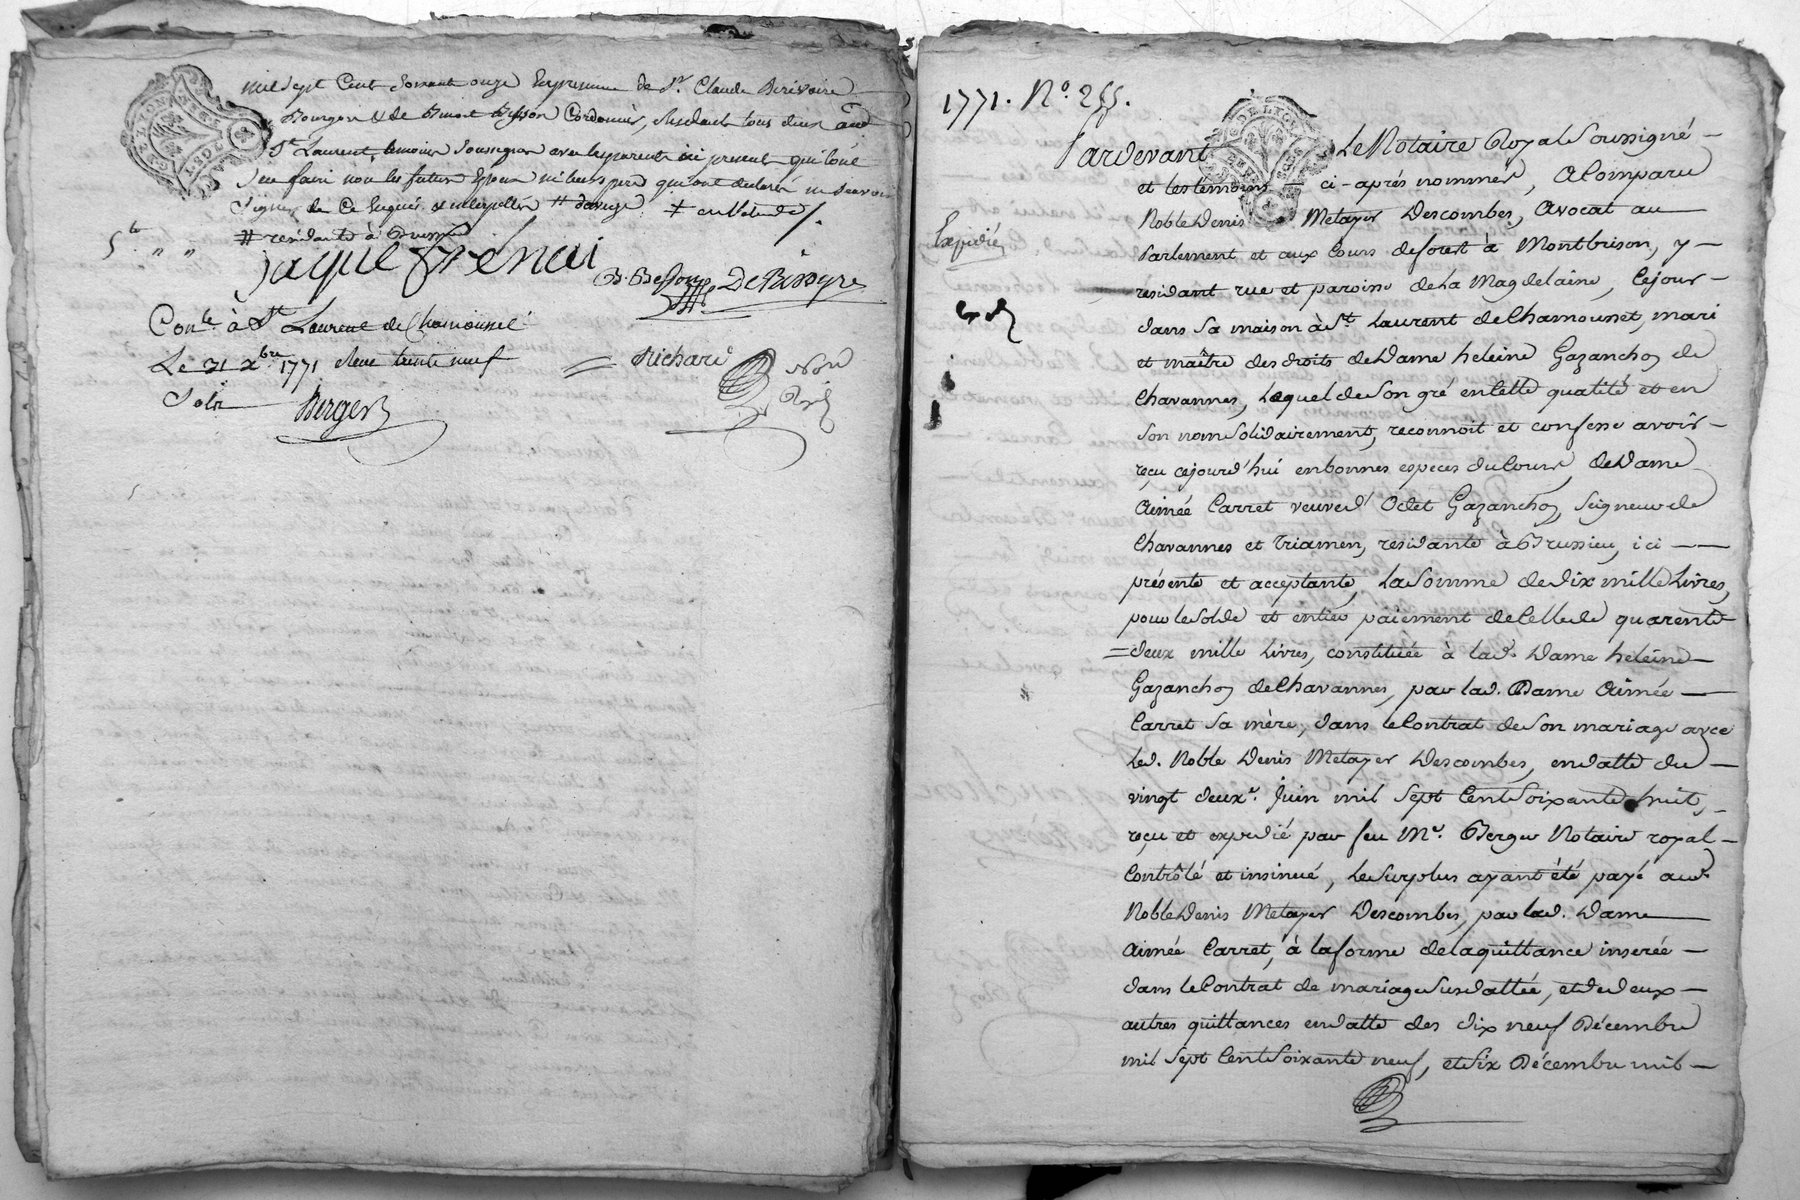 mil sept Cent soixante onze En presence de Sr Claude
Bourgeois & de Benoit Cordonnier, Residants tous deux aud
St Laurent, temoins soussignés avec les parents ici presents qui l'ont
sçu faire non les futurs Epoux ni leurs pere qui ont declaré ne sçavoir
signer de Ce Enquis & interpellés
# residante à Brussieu
Jaque frénai
Conle. à St Laurent de Chamousset
Le 21 Xbre 1771 Reçu treize neuf
Sols Berger
Richard
Not
Roy
1771. N.º 255.
Pardevant Le Notaire Royal Soussigné
et les témoins ci-aprés nommés, a Comparu
Noble Denis Metayer Descombes, Avocat au
Parlement et aux Cours de forest à Montbrison, y
Expedié
residant rue et paroisse de La Magdelaine, Cejour
dans sa maison à St. Laurent de Chamousset, mari
et maître des droits de Dame heleine Gazanchon de
Chavannes, Lequel de Son gré en Cette qualité et en
Son nom Solidairement, reconnoit et confesse avoir
reçu cejourd'hui en bonnes especes du Cours, de Dame
Aimée Carret veuve d'Odet Gazanchon, Seigneur de
Chavannes et Triamen, residante à Brussieu, ici
présente et acceptante, La Somme de dix mille Livres,
pour le Solde et entier païement de Celle de quarente
=deux mille Livres, constituée à lad. Dame heleine
Gazanchon de Chavannes, par lad. Dame Aimée
Carret Sa mère, dans le Contrat de Son mariage avec
Led. Noble Denis Metayer Descombes, en datte du
vingt deuxe. Juin mil Sept Cent Soixante huit,
reçu et expedié par feu Me. Berger Notaire royal
Contrôlé et insinué, Le Surplus ayant été payé aud.
Noble Denis Metayer Descombes, par lad. Dame
Aimée Carret, à la forme de la quittance inserée
dans le Contrat de mariage Susdattée, et de deux
autres quittances en datte des dix neuf Décembre
mil Sept Cent Soixante neuf, et Six Décembre mil